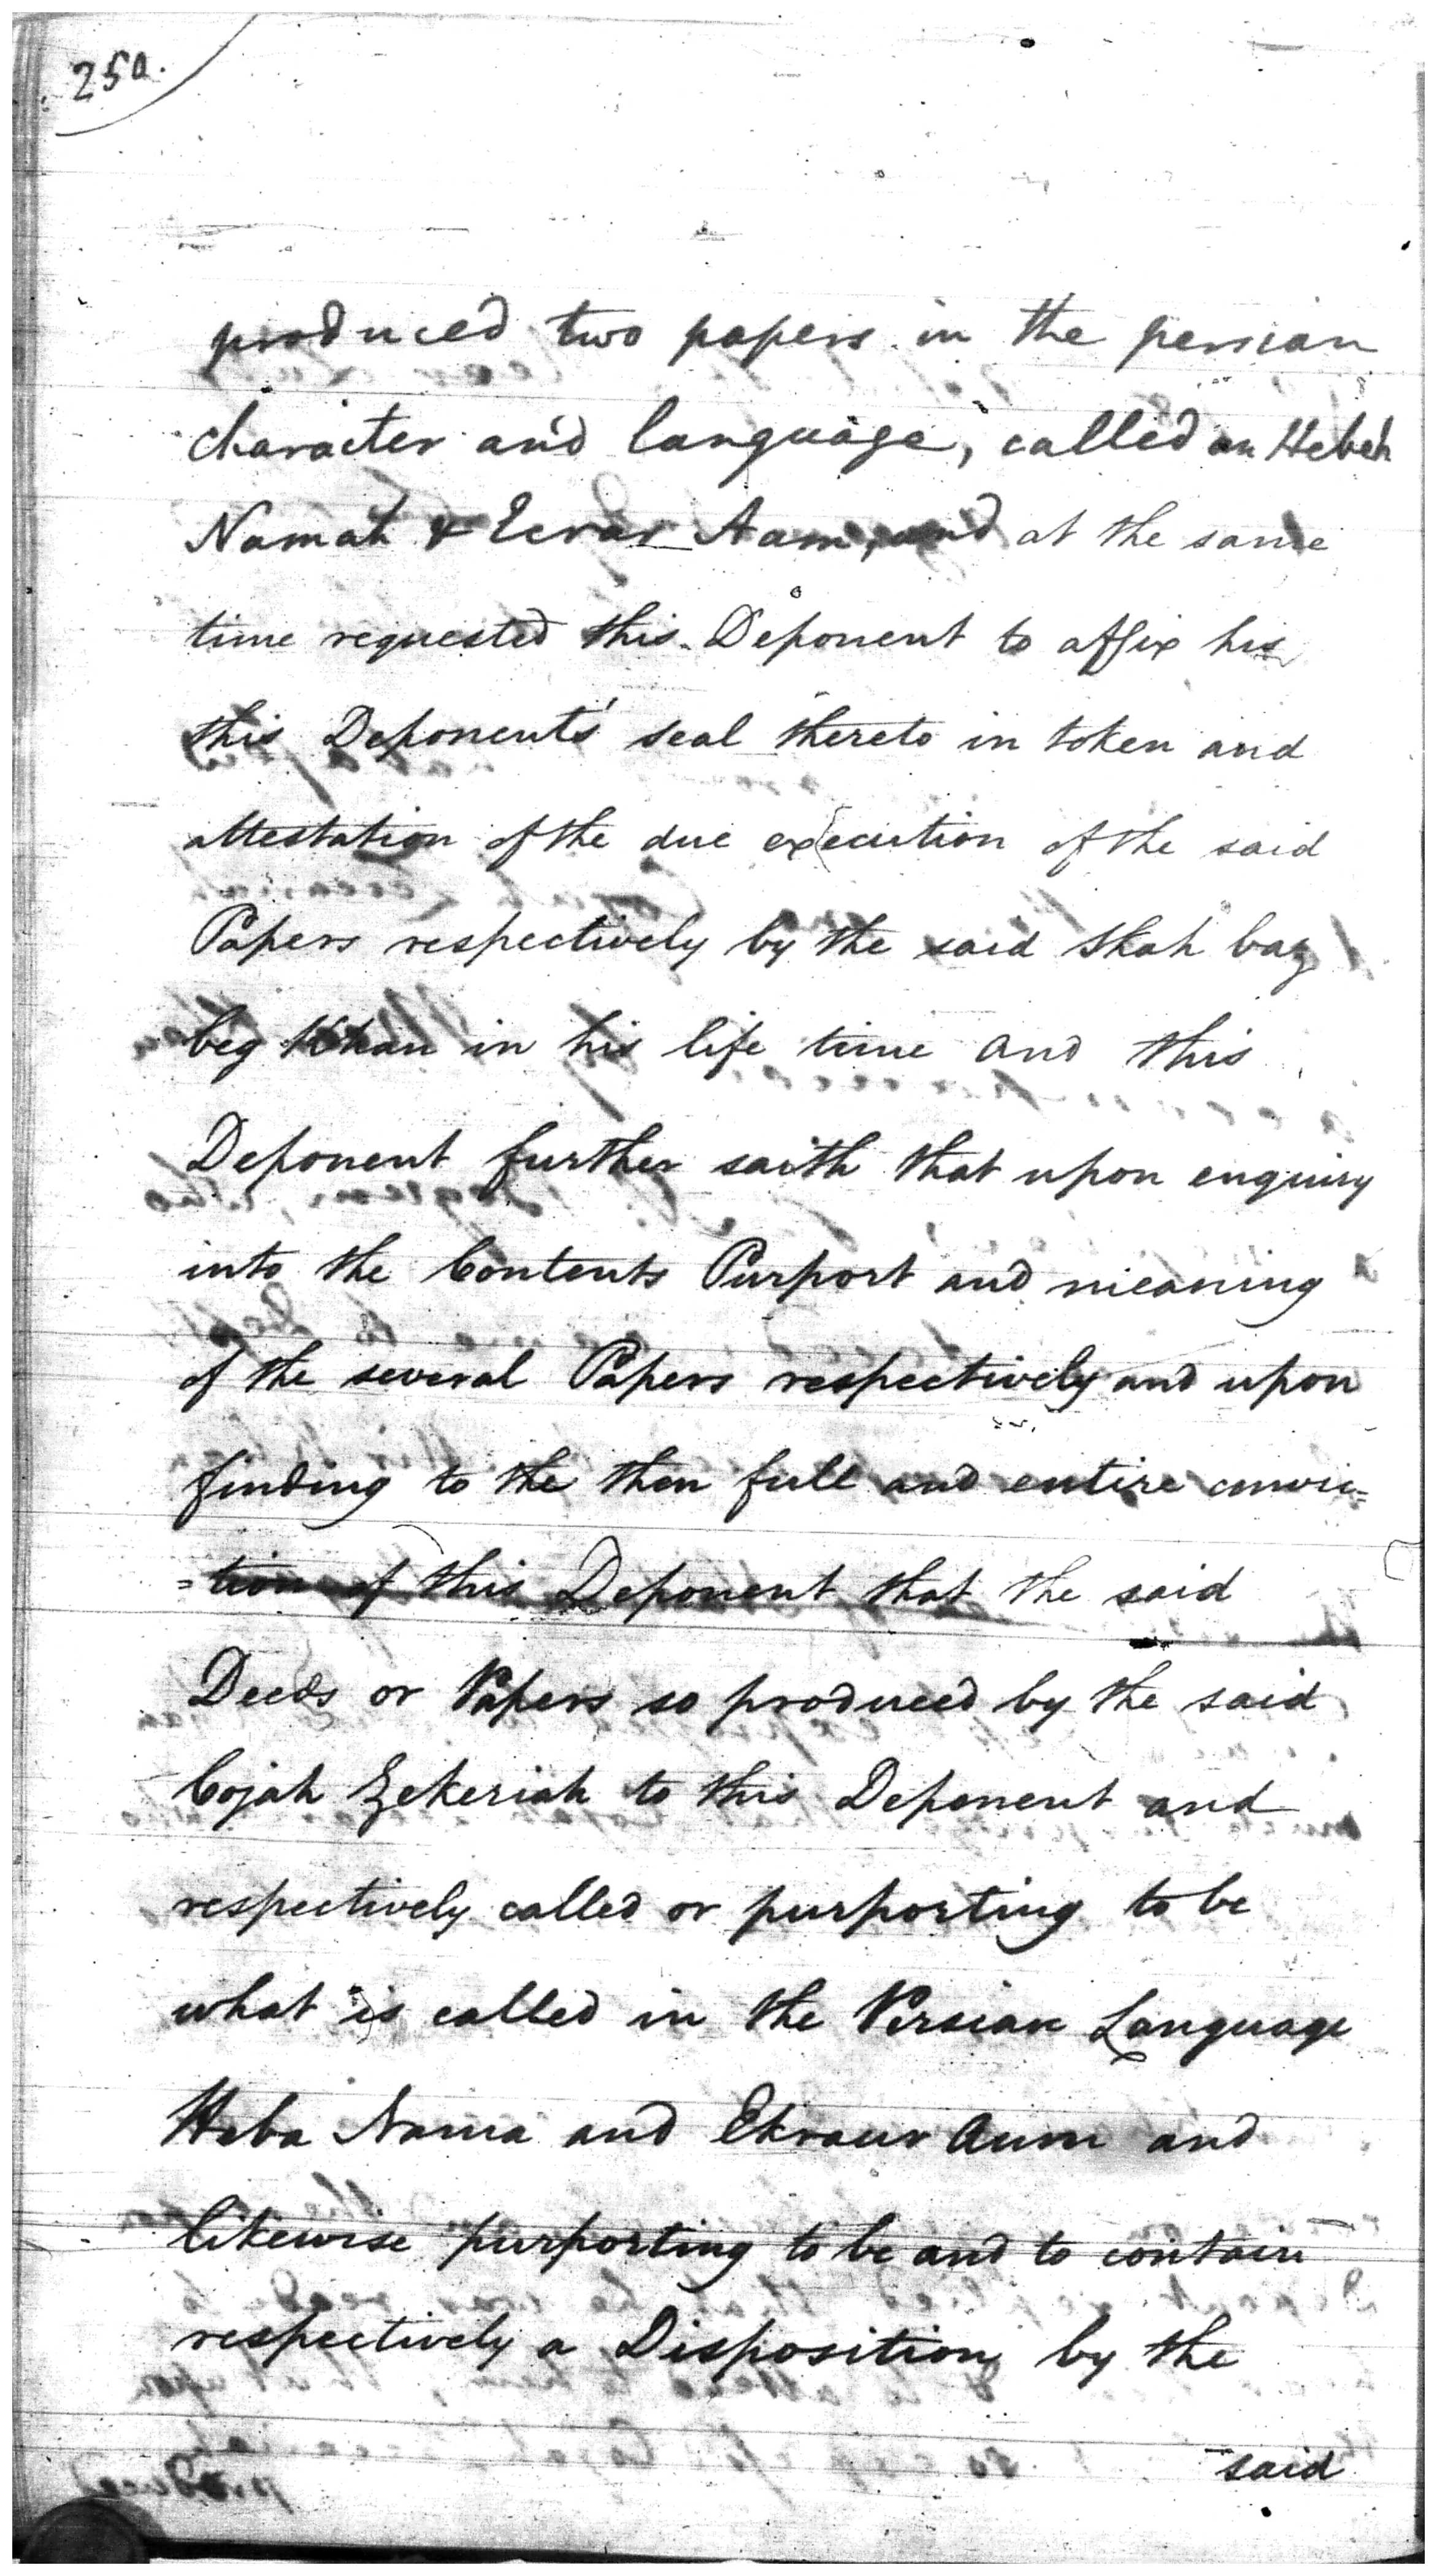 250.
produced two papers in the persian
character and language, called an Hebeh
Namah & Ecrar Aam, and at the same
time requested this Deponent to affix his
this Deponents' seal thereto in token and
attestation of the due execution of the said
Papers respectively by the said Shah baz
beg Khan in his life time and this
Deponent further saith that upon enquiry
into the Contents Purport and meaning
of the several Papers respectively and upon
finding to the then full and entire convic=
=tion of this Deponent that the said
Deeds or Papers so produced by the said
Cojah Zekeriah to this Deponent and
respectively called or purporting to be
what is called in the Persian Language
Heba Nama and Ekraur Aum and
likewise purporting to be and to contain
respectively a Disposition by the
said